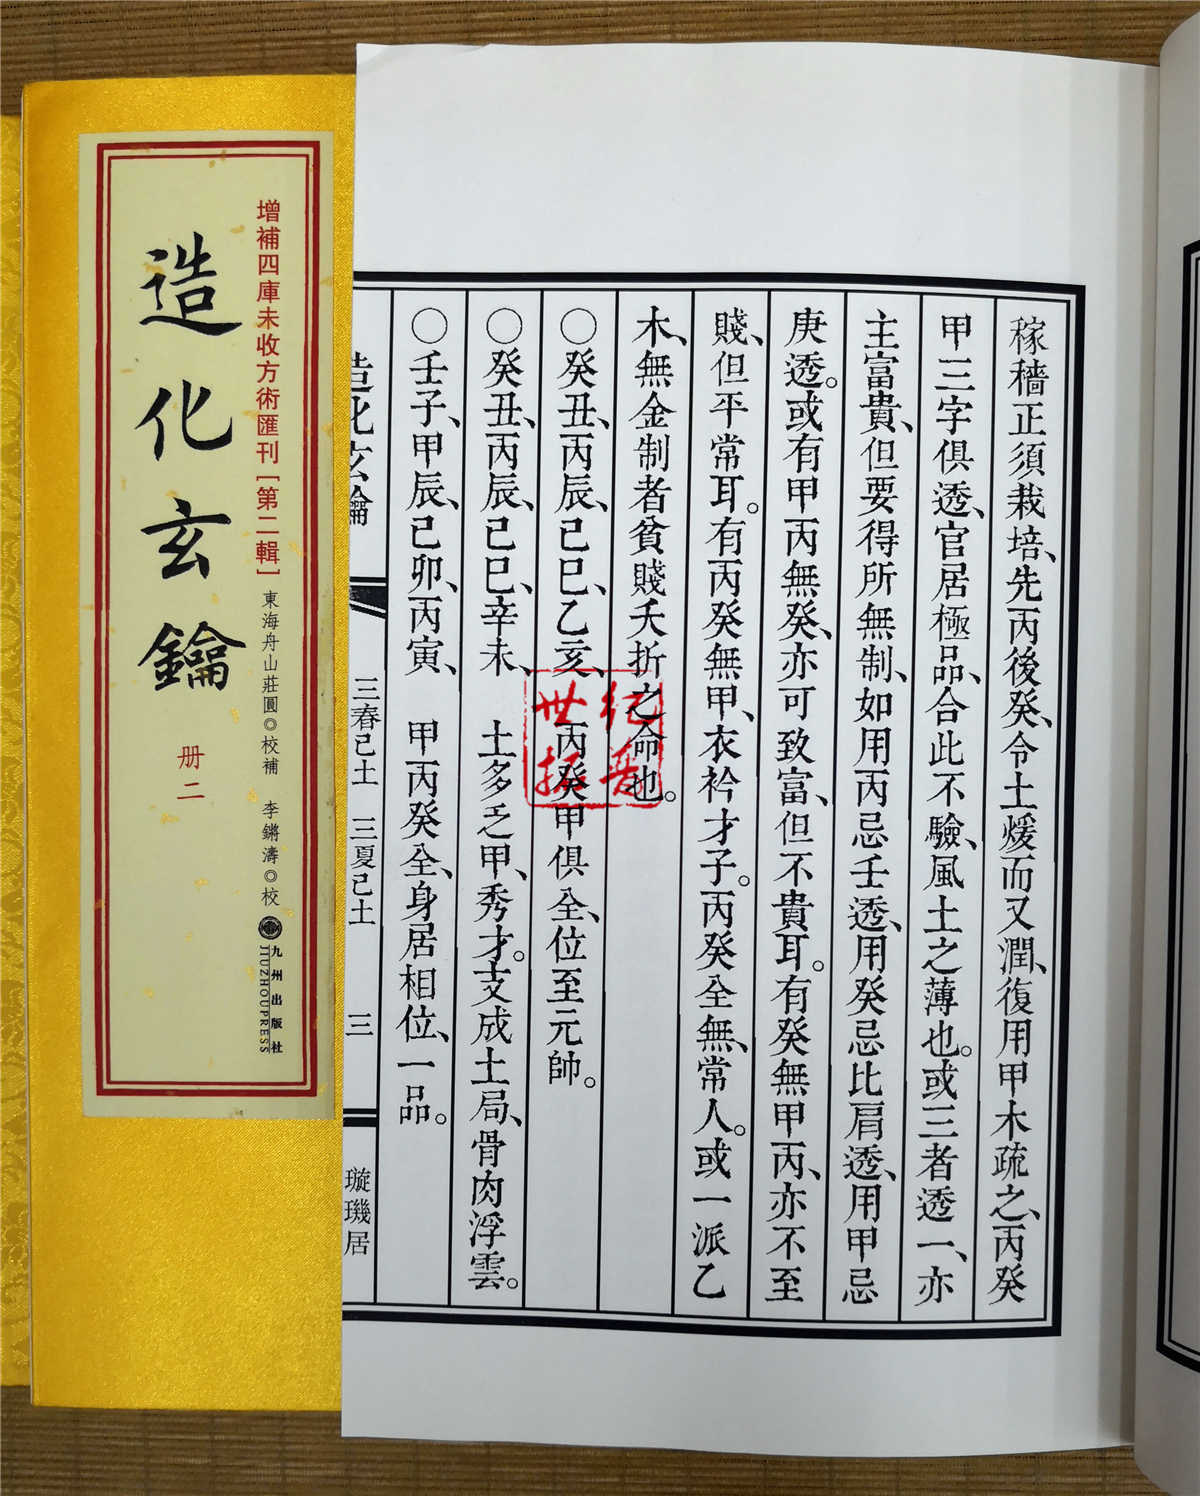 增補四庫未收方術匯刊[第二輯]
東海舟山莊圓◎校補 李鏘濤◎校
造化玄鑰
册二
九州出版社
JIUZHOUPRESS
稼穡正須栽培、先丙後癸、令土煖而又潤、復用甲木疏之、丙癸
甲三字俱透、官居極品、合此不驗、風土之薄也。或三者透一、亦
主富貴、但要得所無制、如用丙忌壬透、用癸忌比肩透、用甲忌
庚透。或有甲丙無癸、亦可致富、但不貴耳。有癸無甲丙、亦不至
賤、但平常耳。有丙癸無甲、衣衿才子。丙癸全無、常人。或一派乙
木、無金制者貧賤夭折之命也。
○癸丑、丙辰、己巳、乙亥、 丙癸甲俱全、位至元帥。
○癸丑、丙辰、己巳、辛未、 土多乏甲、秀才。支成土局、骨肉浮雲。
○壬子、甲辰、己卯、丙寅、 甲丙癸全、身居相位、一品。
造化玄鑰 三春己土 三夏己土 三 璇璣居
世纪拓普